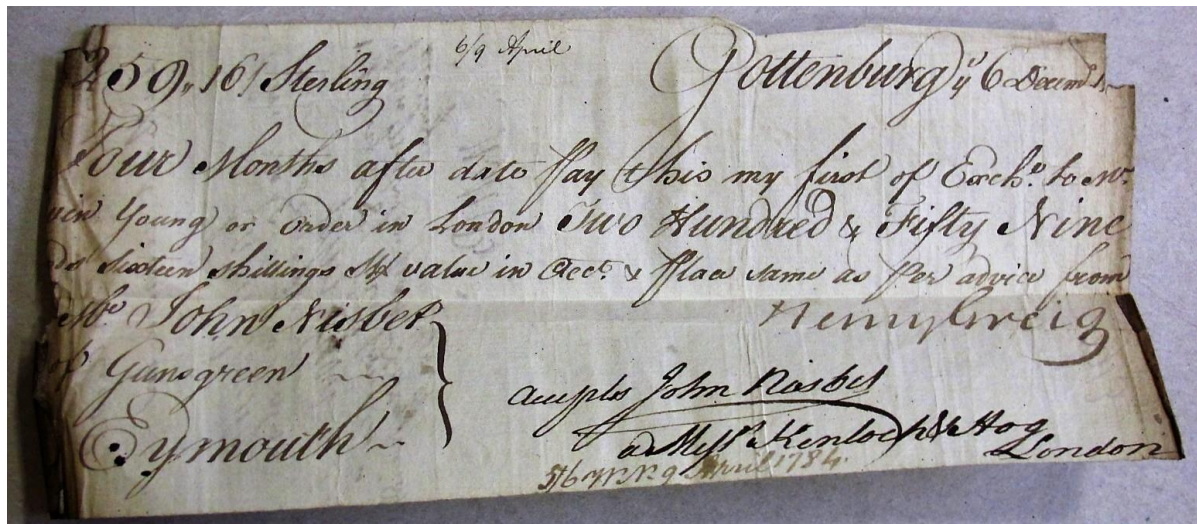 259,, 16/ Sterling 6/9 April Gottenburg ye 6 Decemr
Four Months after date Pay this my first of Exche. to Mr.
Young or Order in London Two Hundred & Fifty Nine
Sixteen shillings Stg value in Acct. & place same as per advice from
Mr. John Nisbet Henry Greig
of Gunsgreen
Eymouth
accepts John Nisbet
a Messrs Kenloch & Hog
London
9 April 1784